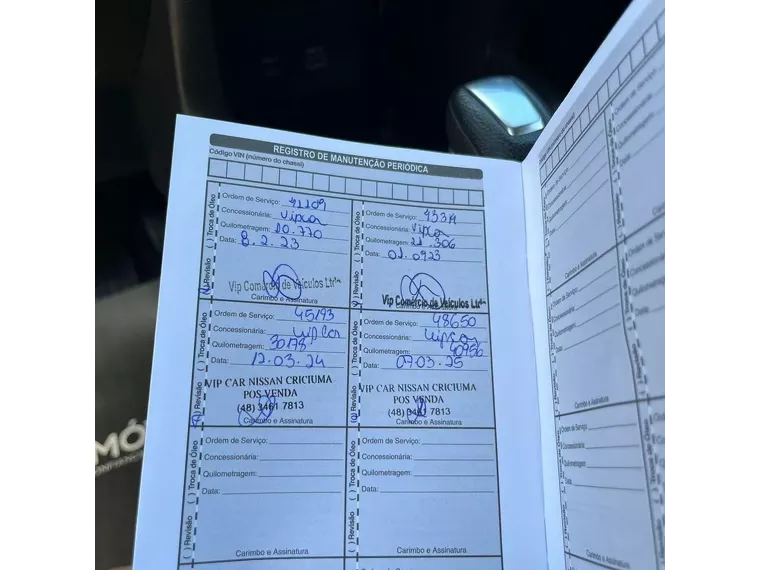 REGISTRO DE MANUTENÇÃO PERIÓDICA
Código VIN (número do chassi)
( ) Revisão ( ) Troca de Óleo
Ordem de Serviço: 41109
Concessionária: Vipcar
Quilometragem: 10.770
Data: 8.2.23
Vip Comércio de Veículos Ltda
Carimbo e Assinatura
( ) Revisão ( ) Troca de Óleo
Ordem de Serviço:
Concessionária: Vipcar
Quilometragem: 21.306
Data: 01.0923
Vip Comércio de Veículos Ltda
Carimbo e Assinatura
Revisão ( ) Troca de Óleo
Ordem de Serviço: 45193
Concessionária: Vip Car
Quilometragem: 30178
Data: 12.03.24
VIP CAR NISSAN CRICIUMA
POS VENDA
(48) 3461 7813
Carimbo e Assinatura
Revisão ( ) Troca de Óleo
Ordem de Serviço: 48650
Concessionária: Vipcar
Quilometragem: 40956
Data: 07.03.25
VIP CAR NISSAN CRICIUMA
POS VENDA
(48) 3461 7813
Carimbo e Assinatura
( ) Revisão ( ) Troca de Óleo
Ordem de Serviço:
Concessionária:
Quilometragem:
Data:
Carimbo e Assinatura
( ) Revisão ( ) Troca de Óleo
Ordem de Serviço:
Concessionária:
Quilometragem:
Data:
Carimbo e Assinatura
MÓ
Código VIN (número do chassi)
Ordem de Serviço:
Concessionária:
Quilometragem:
Data:
Carimbo e Assinatura
Ordem de Serviço:
Concessionária:
Quilometragem:
Data:
Carimbo e Assinatura
Ordem de Serviço:
Concessionária:
Quilometragem:
Data: